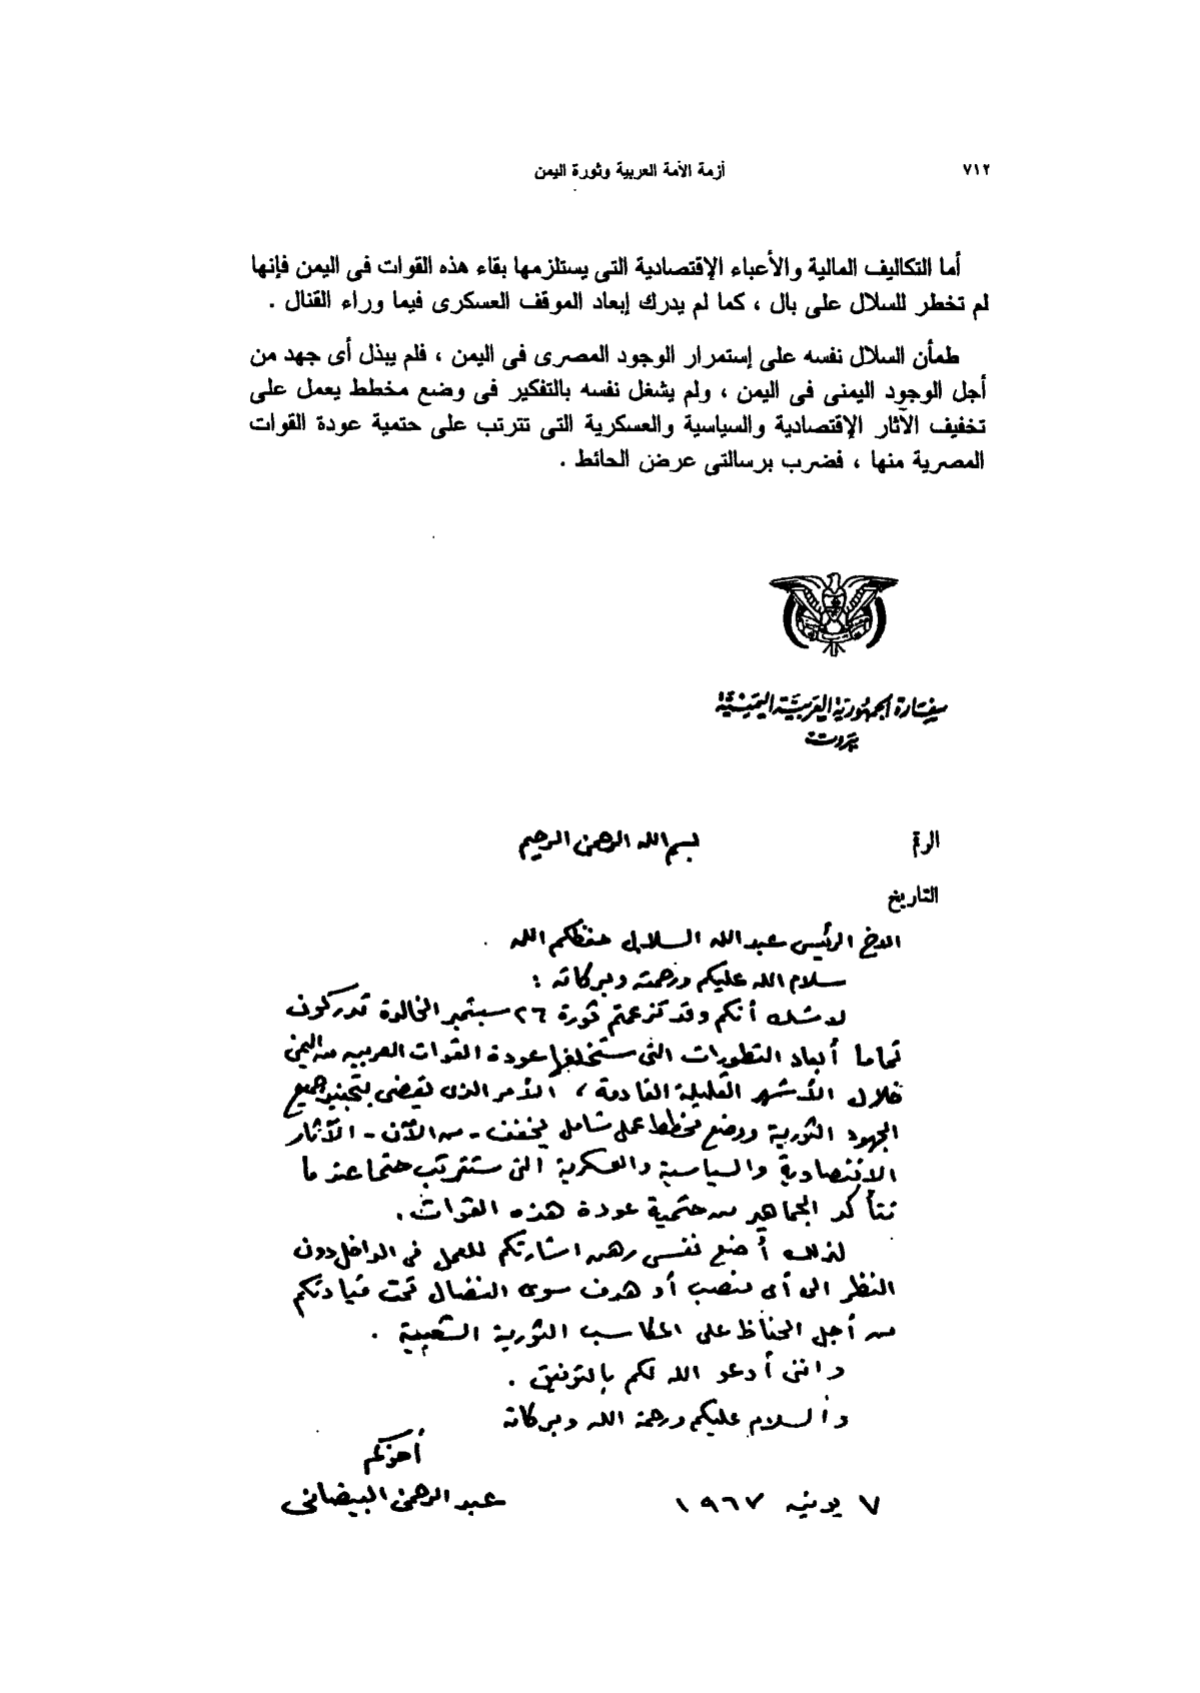 ٧١٢
أزمة الأمة العربية وثورة اليمن
أما التكاليف المالية والأعباء الإقتصادية التى يستلزمها بقاء هذه القوات فى اليمن فإنها
لم تخطر للسلال على بال ، كما لم يدرك إبعاد الموقف العسكرى فيما وراء القنال .
طمأن السلال نفسه على إستمرار الوجود المصرى فى اليمن ، فلم يبذل أى جهد من
أجل الوجود اليمنى فى اليمن ، ولم يشغل نفسه بالتفكير فى وضع مخطط يعمل على
تخفيف الآثار الإقتصادية والسياسية والعسكرية التى تترتب على حتمية عودة القوات
المصرية منها ، فضرب برسالتى عرض الحائط .
سفارة الجمهورية العربية اليمنية
بيروت
الرقم
بسم الله الرحمن الرحيم
التاريخ
الاخ الرئيس عبد الله السلال حفظكم الله .
سلام الله عليكم ورحمته وبركاته :
لاشك أنكم وقد تزعمتم ثورة ٢٦ سبتمبر الخالدة تدركون
تماما أبعاد التطورات التى ستخلفها عودة القوات العربيه من اليمن
خلال الأشهر القليلة القادمة ، الأمر الذى يقضى بتجنيد جميع
الجهود الثورية ووضع مخطط عمل شامل يخفف - من الآن - الآثار
الاقتصادية والسياسية والعسكرية التى ستترتب حتما عندما
تتأكد الجماهير من حتمية عودة هذه القوات .
لذلك أضع نفسى رهن اشارتكم للعمل فى الداخل دون
النظر الى أى منصب أو هدف سوى النضال تحت قيادتكم
من أجل الحفاظ على المكاسب الثورية الشعبية .
واننى أدعو الله لكم بالتوفيق .
والسلام عليكم ورحمة الله وبركاته
أخوكم
عبد الرحمن البيضانى
٧ يونيه ١٩٦٧